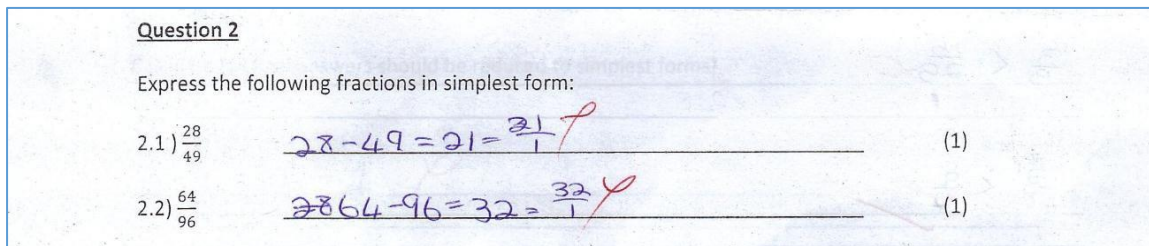 Question 2
Express the following fractions in simplest form:
2.1) 28/49 28-49=21=21/1 (1)
2.2) 64/96 2864-96=32=32/1 (1)